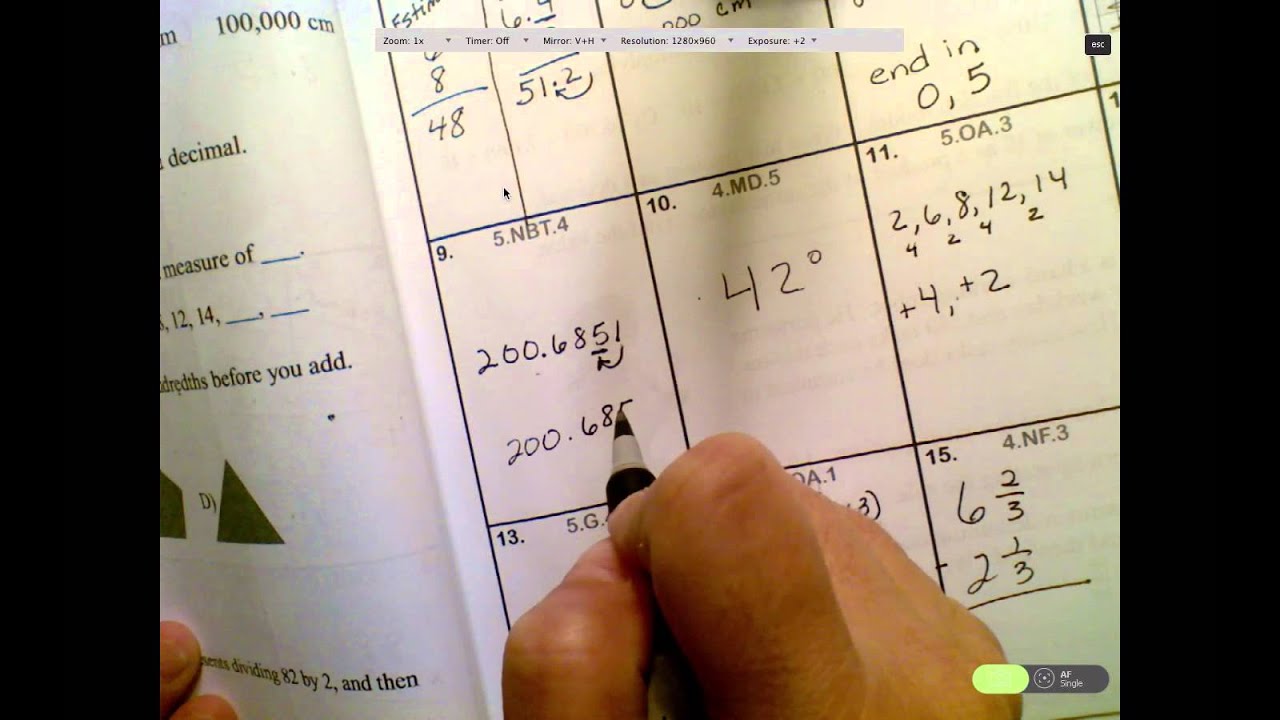 100,000 cm
Zoom: 1x Timer: Off Mirror: V+H Resolution: 1280x960 Exposure: +2
esc
8
48
51.2
000 cm
end in
0, 5
decimal.
measure of ___.
12, 14, ___, ___
before you add.
D)
dividing 82 by 2, and then
9. 5.NBT.4
200.6851
200.685
10. 4.MD.5
42°
11. 5.OA.3
2, 6, 8, 12, 14
4 2 4 2
+4, +2
13. 5.G.
OA.1
3)
15. 4.NF.3
6 2/3
- 2 1/3
AF
Single